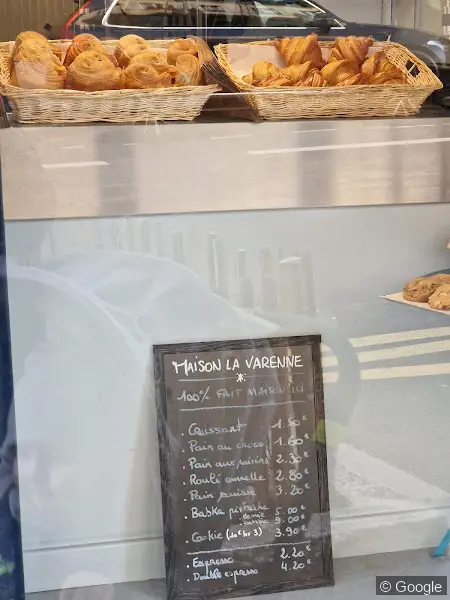 MAISON LA VARENNE
100% FAIT MAISON ICI
. Croissant 1.50€
. Pain au choco 1.60€
. Pain aux raisins 2.30€
. Roulé cannelle 2.80€
. Pain suisse 3.20€
. Babka pistache 5.00€
demie
entière 9.00€
. Cookie (10€ les 3) 3.90€
. Espresso 2.20€
. Double espresso 4.20€
© Google